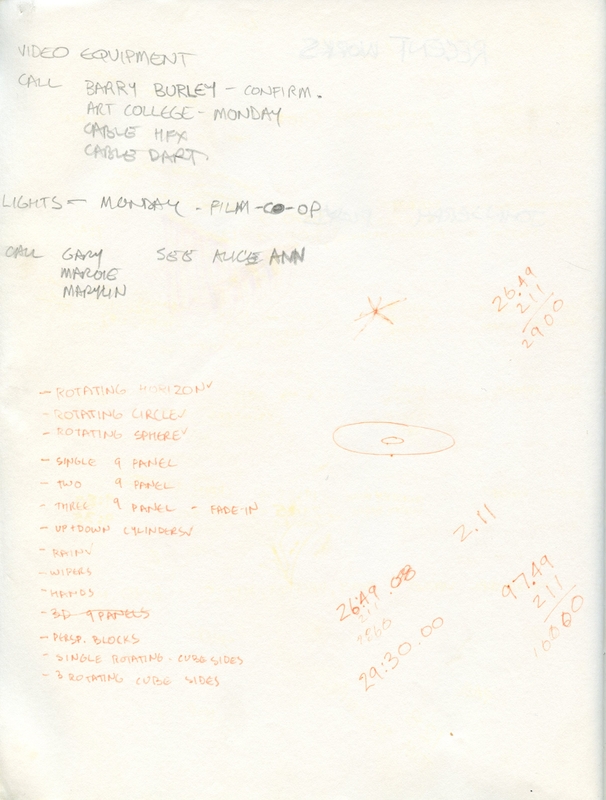 VIDEO EQUIPMENT
CALL BARRY BURLEY - CONFIRM.
ART COLLEGE - MONDAY
CABLE HFX
CABLE DART
LIGHTS - MONDAY - FILM-CO-OP
CALL GARY SEE ALICE ANN
MARGIE
MARYLIN
26.49
211
2900
- ROTATING HORIZON ✓
- ROTATING CIRCLE ✓
- ROTATING SPHERE ✓
- SINGLE 9 PANEL
- TWO 9 PANEL
- THREE 9 PANEL - FADE-IN
- UP+DOWN CYLINDERS ✓
- RAIN ✓
- WIPERS
- HANDS
- 3D 9 PANELS
- PERSP. BLOCKS
- SINGLE ROTATING. CUBE SIDES
- 3 ROTATING CUBE SIDES
2.11
26:49.08
211
29:30.00
97.49
211
RECENT WORKS